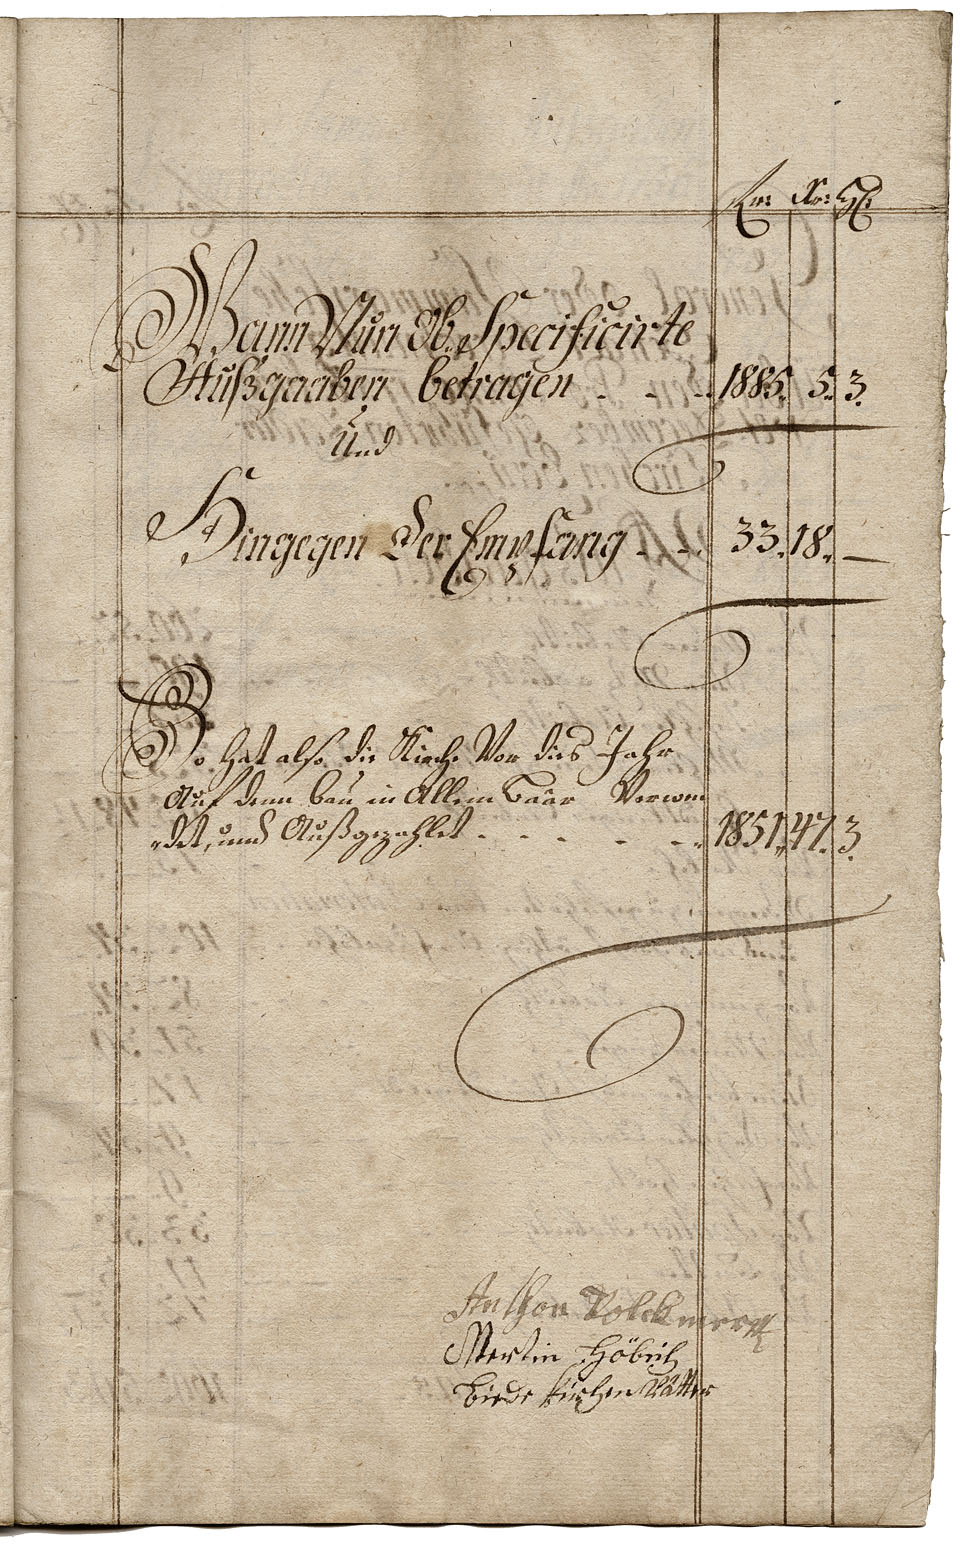 fl: Xr: hl:
Wann Nun Ob Specificirte
Außgaaben betragen - - - 1885. 5. 3.
Und
Hingegen Der Empfang - - - 33. 18. —
So hat also die Kirche Vor dies Jahr
Auf denn bau in Allem Baar Verwen
det, und Außgezahlet - - - - - 1851. 47. 3.
Anthon Volckmer
Mertin Höbich
Beede kürchen Vätter